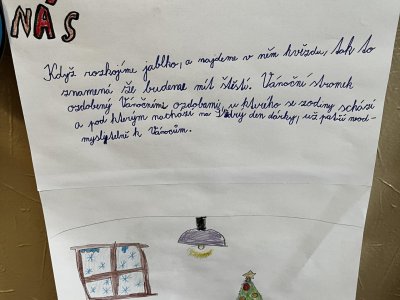 NÁS
Když rozkojíme jablko, a najdeme v něm hvězdu, tak to
znamená že budeme mít štěstí. Vánoční stromek
ozdobený Vánočními ozdobami, u kterého se rodiny schází
a pod kterým nachází na Štědrý den dárky, už patří neod-
myslytelně k Vánocům.